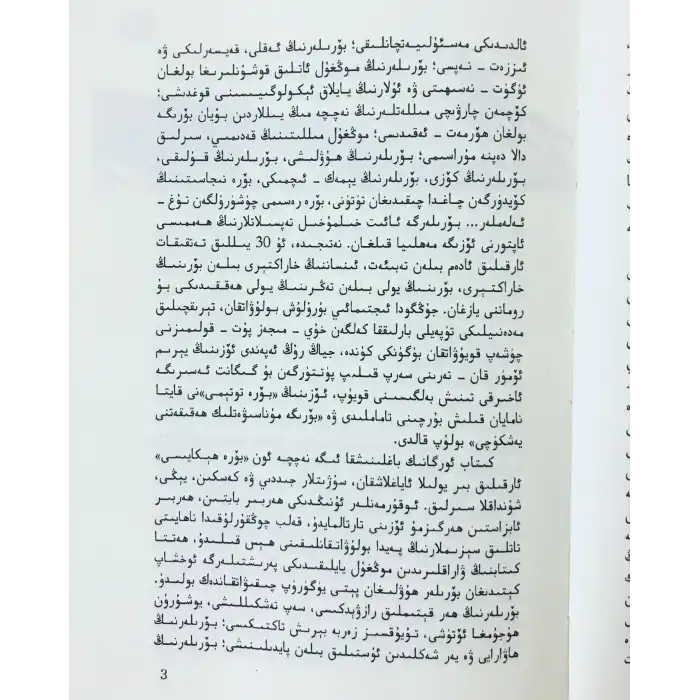 ئالدىدىكى مەسئۇلىيەتچانلىقى؛ بۆرىلەرنىڭ ئەقلى، قەيسەرلىكى ۋە
ئىززەت – نەپسى؛ بۆرىلەرنىڭ موڭغۇل ئاتلىق قوشۇنلىرىغا بولغان
ئۈگۈت – نەسىھىتى ۋە ئۇلارنىڭ يايلاق ئېكولوگىيىسىنى قوغدىشى؛
كۆچمەن چارۋىچى مىللەتلەرنىڭ نەچچە مىڭ يىللاردىن بۇيان بۆرىگە
بولغان ھۆرمەت – ئەقىدىسى؛ موڭغۇل مىللىتىنىڭ قەدىمىي، سىرلىق
دالا دەپنە مۇراسىمى؛ بۆرىلەرنىڭ ھۇۋلىشى، بۆرىلەرنىڭ قۇلىقى،
بۆرىلەرنىڭ كۆزى، بۆرىلەرنىڭ يېمەك – ئىچمىكى، بۆرە نىجاسىتىنىڭ
كۆيدۈرگەن چاغدا چىقىدىغان تۈتۈنى، بۆرە رەسىمى چۈشۈرۈلگەن تۇغ –
ئەلەملەر... بۆرىلەرگە ئائىت خىلمۇخىل تەپسىلاتلارنىڭ ھەممىسى
ئاپتورنى ئۆزىگە مەھلىيا قىلغان. نەتىجىدە، ئۇ 30 يىللىق تەتقىقات
ئارقىلىق ئادەم بىلەن تەبىئەت، ئىنساننىڭ خاراكتېرى بىلەن بۆرىنىڭ
خاراكتېرى، بۆرىنىڭ يولى بىلەن تەڭرىنىڭ يولى ھەققىدىكى بۇ
روماننى يازغان. جۇڭگودا ئىجتىمائىي بۇرۇلۇش بولۇۋاتقان، تېرىقچىلىق
مەدەنىيلىكى تۈپەيلى بارلىققا كەلگەن خۇي – مىجەز پۇت – قولىمىزنى
چۈشەپ قويۇۋاتقان بۈگۈنكى كۈندە، جياڭ رۇڭ ئەپەندى ئۆزىنىڭ يېرىم
ئۆمۈر قان – تەرىنى سەرپ قىلىپ پۈتتۈرگەن بۇ گىگانت ئەسىرىگە
ئاخىرقى تىنىش بەلگىسىنى قويۇپ، ئۆزىنىڭ «بۆرە توتېمى»نى قايتا
نامايان قىلىش بۇرچىنى تاماملىدى ۋە «بۆرىگە مۇناسىۋەتلىك ھەقىقەتنى
يەشكۈچى» بولۇپ قالدى.
كىتاب ئورگانىك باغلىنىشقا ئىگە نەچچە ئون «بۆرە ھېكايىسى»
ئارقىلىق بىر يوللا ئاياغلاشقان، سۇژىتلار جىددىي ۋە كەسكىن، يېڭى،
شۇنداقلا سىرلىق. ئوقۇرمەنلەر ئۇنىڭدىكى ھەربىر بابتىن، ھەربىر
ئابزاستىن ھەرگىزمۇ ئۆزىنى تارتالمايدۇ، قەلب چوڭقۇرلۇقىدا ناھايىتى
تاتلىق سېزىملارنىڭ پەيدا بولۇۋاتقانلىقىنى ھېس قىلىدۇ، ھەتتا
كىتابنىڭ ۋاراقلىرىدىن موڭغۇل يايلىقىدىكى پەرىشتىلەرگە ئوخشاپ
كېتىدىغان بۆرىلەر ھۇۋلىغان پېتى يۈگۈرۈپ چىقىۋاتقاندەك بولىدۇ.
بۆرىلەرنىڭ ھەر قېتىملىق رازۋېدكىسى، سەپ تەشكىللىشى، يوشۇرۇن
ھۇجۇمغا ئۆتۈشى، تۇيۇقسىز زەربە بېرىش تاكتىكىسى؛ بۆرىلەرنىڭ
ھاۋارايى ۋە يەر شەكلىدىن ئۈستىلىق بىلەن پايدىلىنىشى؛ بۆرىلەرنىڭ
3